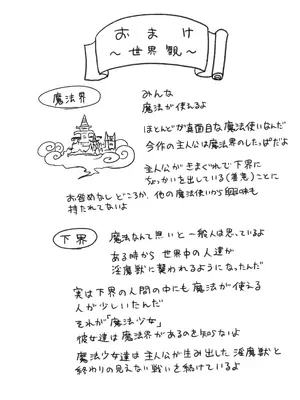 おまけ
〜世界観〜
魔法界
みんな
魔法が使えるよ
ほとんどが真面目な魔法使いなんだ
今作の主人公は魔法界のしたっぱだよ
主人公がきまぐれで下界に
ちょっかいを出している(善意)ことに
お咎めなしどころか、他の魔法使いから興味も
持たれてないよ
下界
魔法なんて無いと一般人は思っているよ
ある時から世界中の人達が
淫魔獣に襲われるようになったんだ
実は下界の人間の中にも魔法が使える
人が少しいたんだ
それが「魔法少女」
彼女達は魔法界があるのを知らないよ
魔法少女達は主人公が生み出した淫魔獣と
終わりの見えない戦いを続けているよ